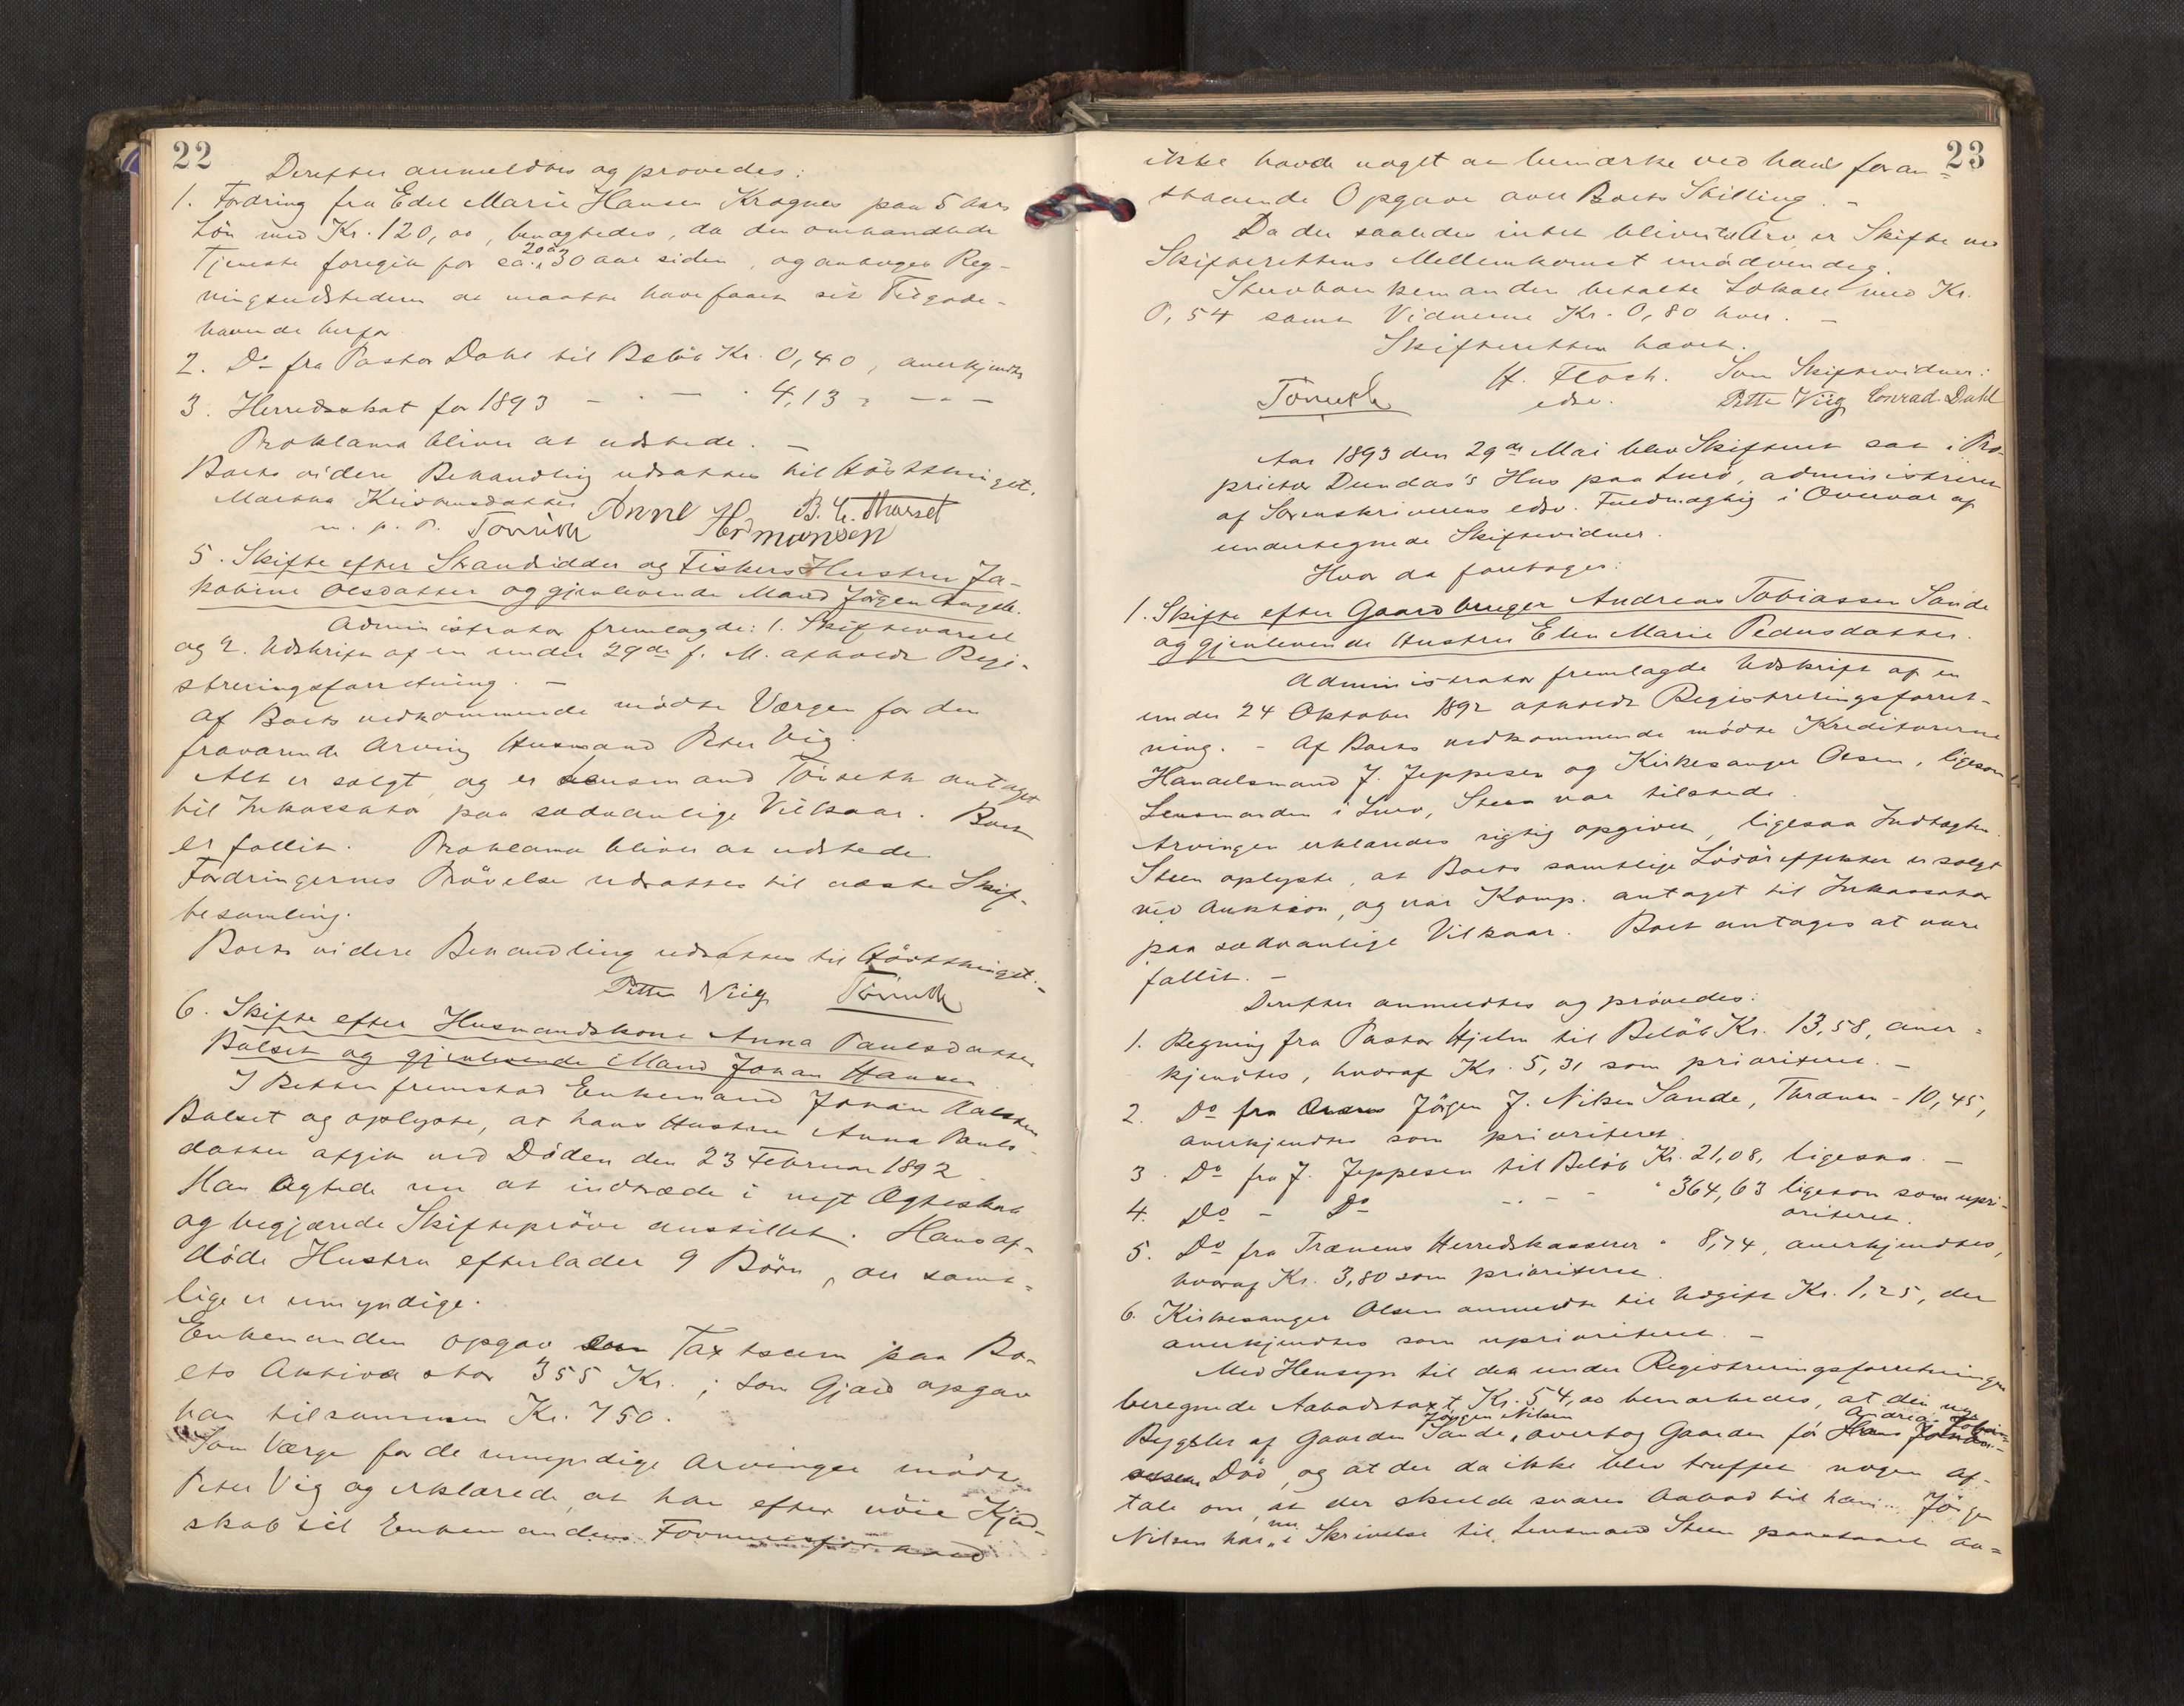 22
Derefter anmeldtes og prøvedes:
1. Fordring fra Edel Marie Hansen Kragnes paa 5 Aars
Løn med Kr. 120,00, benægtedes, da den omhandlede
Tjeneste foregik for ca. 20 à 30 aar siden, og antages Reg-
ningsudstederen at maatte have faaet sit Tilgode-
havende herfor.
2. Do fra Pastor Dahl til Beløb Kr. 0,40, anerkjendtes
3. Herredsskat for 1893 - · - · 4,13, - - -
Proklama bliver at udstede. -
Boets videre Behandling udsattes til Høstthinget.
Martha Kristensdatter Anne Hermansen B. C. Tharset
m. p. P. Tønseth
5. Skifte efter Strandsidder og Fiskers Hustru Ja-
kobine Olsdatter og gjenlevende Mand Jørgen
Administrator fremlagde: 1. Skiftevarsel
og 2. Udskrift af en under 29de f. M. afholdt Regi-
streringsforretning. -
Af Boets vedkommende mødte Værgen for den
fraværende Arving Husmand Peter Vig.
Alt er solgt, og er Lensmand Tønseth antaget
til Inkassator paa sædvanlige Vilkaar. Boet
er fallit. Proklama bliver at udstede.
Fordringernes Prøvelse udsattes til næste Skif-
tesamling.
Boets videre Behandling udsattes til Høstthinget. -
Petter Viig Tønseth
6. Skifte efter Husmandskone Anna Paulsdatter
Balset og gjenlevende Mand Johan Hansen.
I Retten fremstod Enkemand Johan Hansen
Balset og oplyste, at hans Hustru Anna Pauls-
datter afgik ved Døden den 23 Februar 1892.
Han agtede nu at indtræde i nyt Ægteskab
og begjærede Skifteprøve anstillet. Hans af-
døde Hustru efterlader 9 Børn, der samt-
lige er umyndige.
Enkemanden opgav Taxtsum paa Bo-
ets Aktiva stor 355 Kr.; som Gjæld opgav
han tilsammen Kr. 750.
Som Værge for de umyndige Arvinger mødte
Peter Vig og erklærede, at han efter nøie Kjend-
skab til Enkemandens Formuesforhold
23
ikke havde noget at bemærke ved hans foran-
staaende Opgave over Boets Stilling. -
Da der saaledes intet bliver til Arv, er Skifte ved
Skifterettens Mellemkomst unødvendig.
Stervboenkemanden betalte Lokale med Kr.
0,54 samt Vidnerne Kr. 0,80 hver. -
Skifteretten hævet.
Tønseth H. Floch. Som Skiftevidner:
edsv. Petter Viig Conrad Dahl
Aar 1893 den 29de Mai blev Skifteret sat i Pro-
prietær Dundas's Hus paa Lurø, administreret
af Sorenskriverens edsv. Fuldmægtig i Overvær af
undertegnede Skiftevidner.
Hvor da foretages:
1. Skifte efter Gaardbruger Andreas Tobiassen Sande
og gjenlevende Hustru Elen Marie Pedersdatter.
Administrator fremlagde Udskrift af en
under 24 Oktober 1892 afholdt Registreringsforret-
ning. - Af Boets vedkommende mødte Kreditorerne
Handelsmand J. Jeppesen og Kirkesanger Olsen, ligesom
Lensmanden i Lurø, Steen var tilstede.
Arvingen erklæredes rigtig opgivet, ligesaa Indtægten.
Steen oplyste, at Boets samtlige Løsøreffekter er solgt
ved Auktion, og var Komp. antaget til Inkassator
paa sædvanlige Vilkaar. Boet antages at være
fallit. -
Derefter anmeldtes og prøvedes:
1. Regning fra Pastor Hjelm til Beløb Kr. 13,58, aner-
kjendtes, hvoraf Kr. 5,31 som prioriteret -
2. Do fra Jørgen J. Nilsen Sande, Thrænen - 10,45,
anerkjendtes som prioriteret.
3. Do fra J. Jeppesen til Beløb Kr. 21,08, ligesaa. -
4. Do - Do - - - " 364,63 ligesom som upri-
oriteret.
5. Do fra Trænens Herredskasserer " 8,74, anerkjendtes,
hvoraf Kr. 3,80 som prioriteret.
6. Kirkesanger Olsen anmeldte til Udgift Kr. 1,25, der
anerkjendtes som uprioriteret. -
Med Hensyn til den under Registreringsforretningen
beregnede Aabodstaxt Kr. 54,00 bemærkedes, at den nye
Bygsler af Gaarden Sande, Jørgen Nilsen overtog Gaarden før Andreas Tobias-
sens Død, og at der da ikke blev truffet nogen Af-
tale om, at der skulde svares Aabod til ham. Jørgen
Nilsen har nu i Skrivelse til Lensmand Steen paastaaet An-